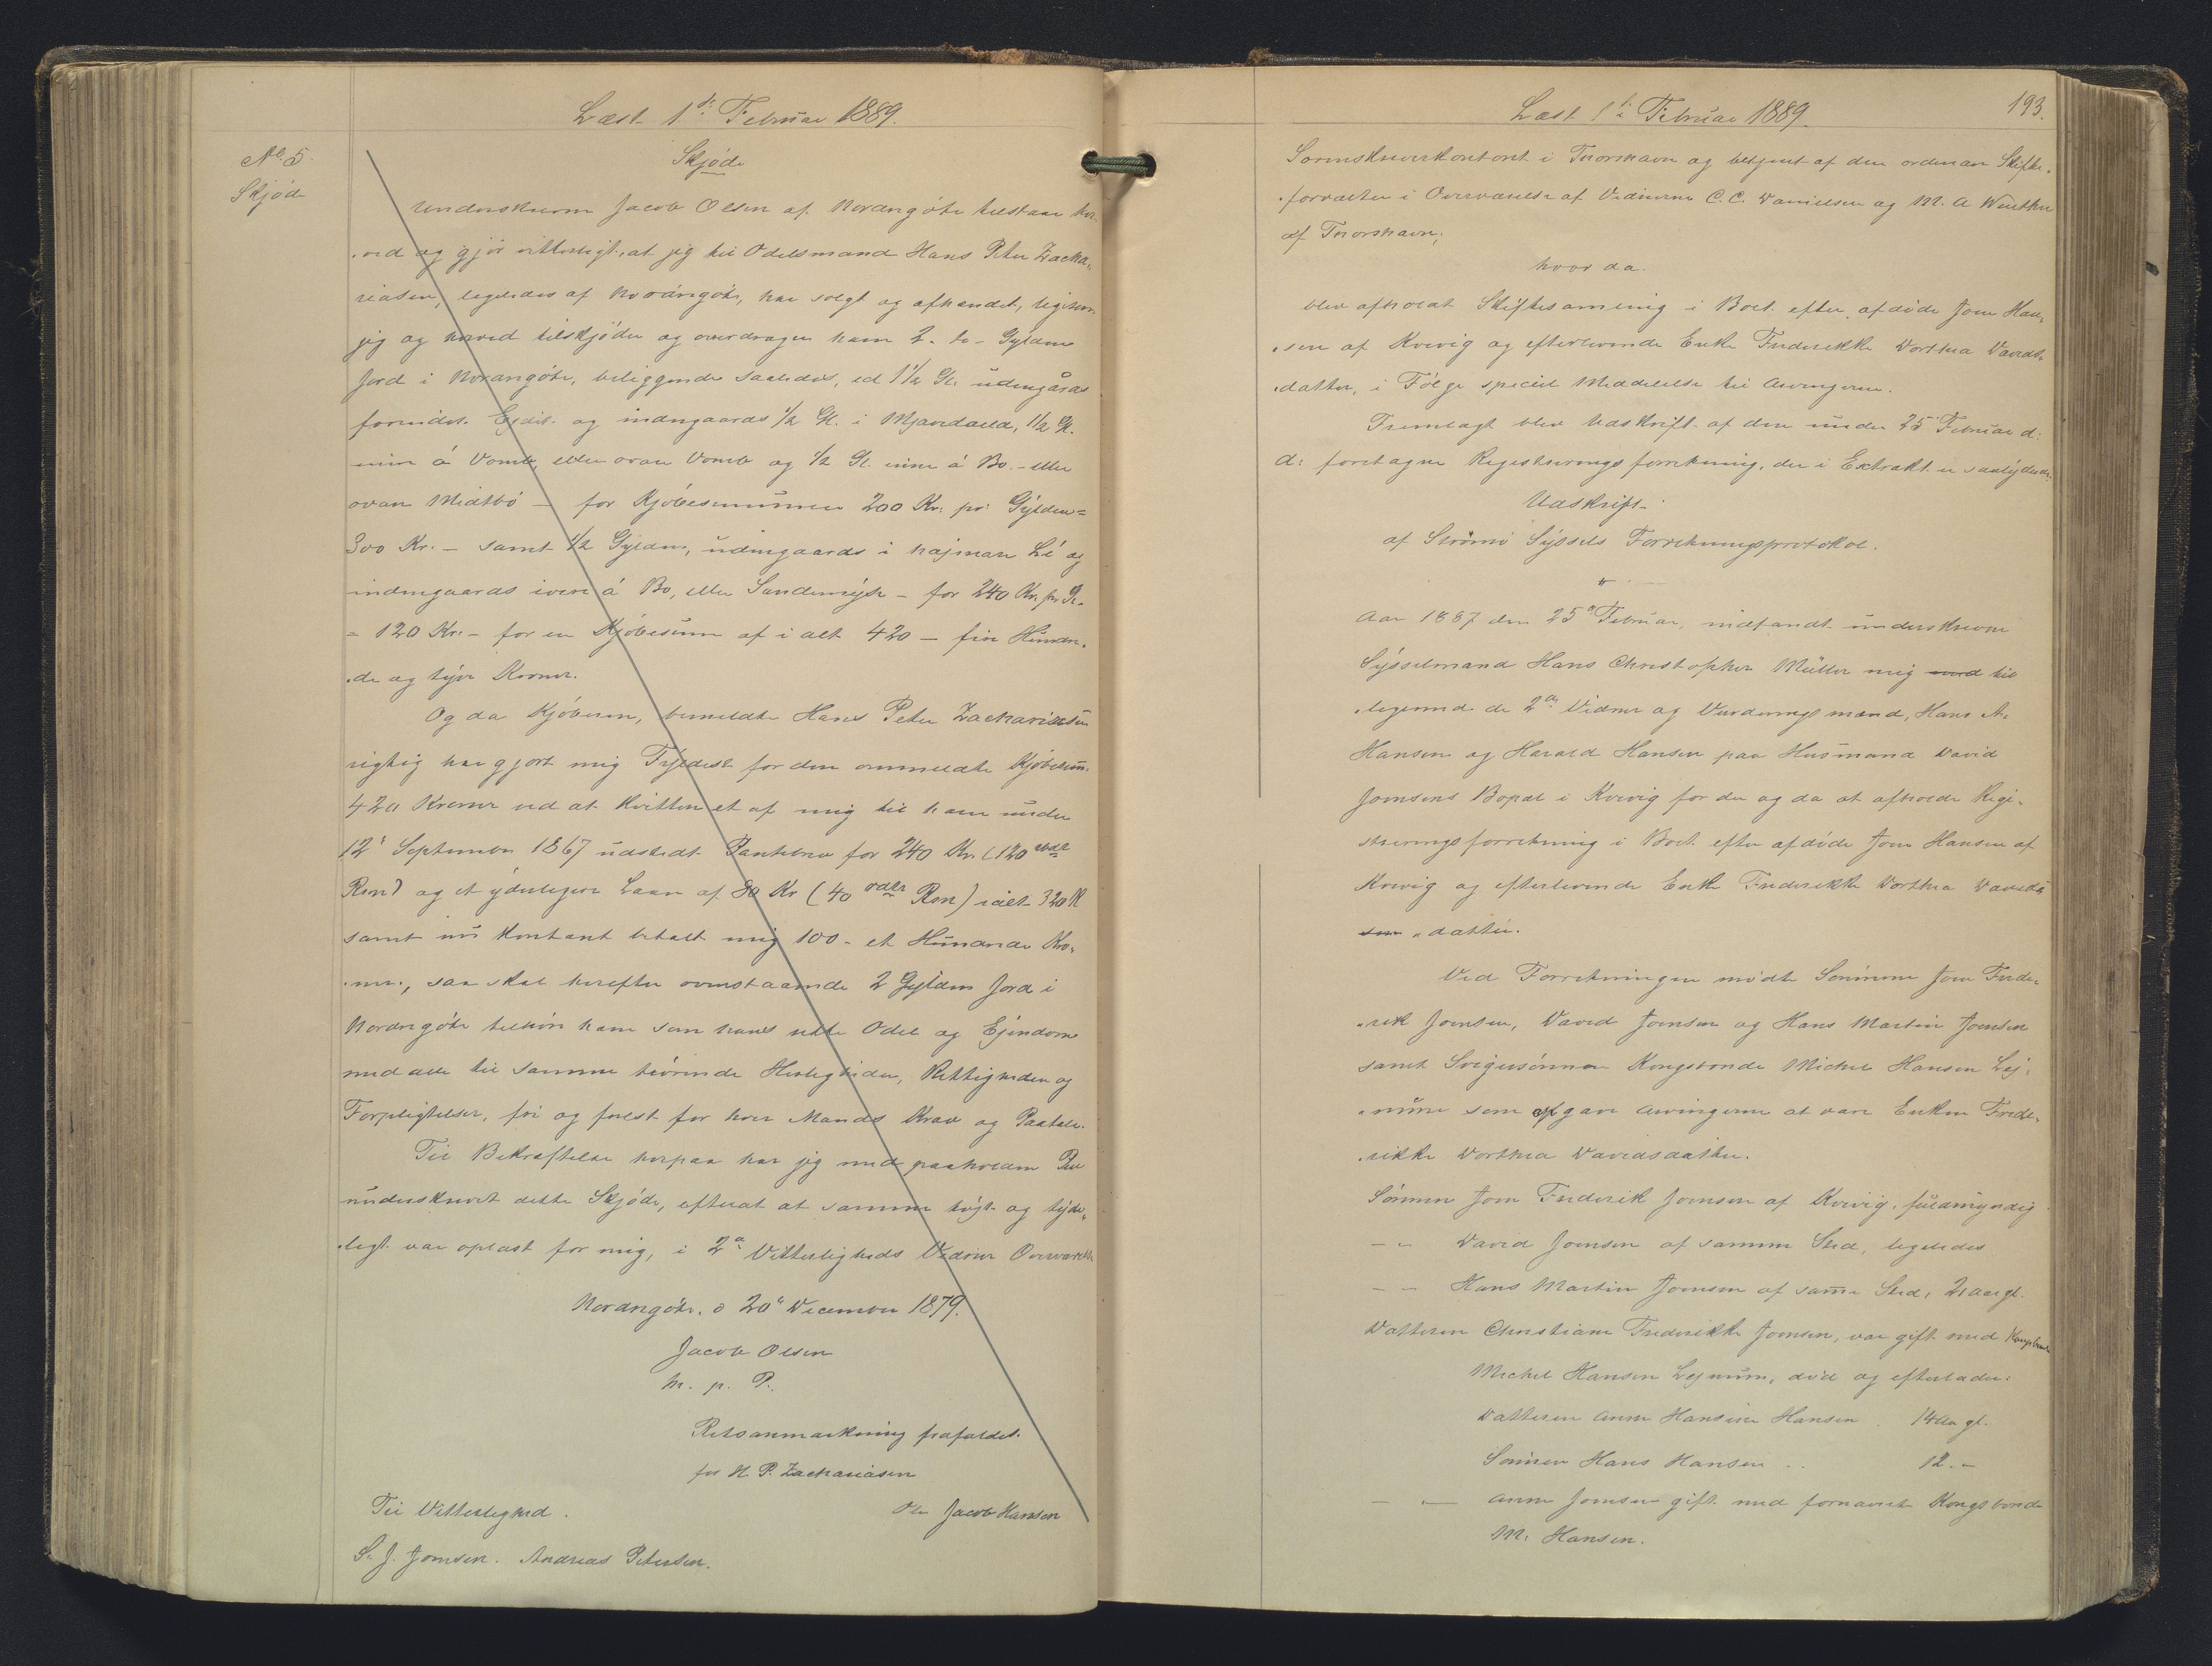 Læst 1ste Februar 1889.
No. 5.
Skjöde
Skjöde
Underskrevne Jacob Olsen af Nordregöte tilstaar her-
-ved og gjör vitterligt, at jeg til Odelsmand Hans Peter Zacha-
riasen, ligeledes af Nordregöte, har solgt og afhændet, ligesom
jeg og herved tilskjöder og overdrager ham 2 - to - Gylden
Jord i NorDregöte, beliggende saaledes, ad 1 1/2 Gl. udengårds
fornides. Ejdis. og indengaards 1/2 Gl. i Mjavdaild, 1/2 Gl.
á Vomb, eller ovan Vomb og 1/2 Gl. inni á Bö - eller
ovan Midtbö - for Kjöbesummen 200 Kr. pr Gylden =
300 Kr. - samt 1/2 Gylden, udengaards i hajman Lí og
indengaards á Bö, eller Sandemyse - for 240 Kr. pr Gl.
= 120 Kr. - for en Kjöbesum af i alt 420 - fire Hundre-
-de og tyve Kroner.
Og da Kjöberen, bemeldte Hans Peter Zachariasen
rigtig har gjort mig Fyldest for den ommeldte Kjöbesum
420 Kroner ved at kvittere et af mig til ham under
12te September 1867 udstedt Pantebrev for 240 Kr. (120 Rdlr
Rm) og et yderligere Laan af 80 Kr (40 Rdlr Rm) ialt 320 K
samt nu kontant betalt mig 100 - et Hundrede Kro-
-ner, saa skal herefter ovenstaaende 2 Gylden Jord i
Nordregöte tilhöre ham som hans rette Odel og Ejendom
med alle til samme hörende Herligheder, Rettigheder og
Forpligtelser, fri og frelst for hver Mands Krav og Paatale.
Til Bekræftelse herpaa har jeg med paaholden Pen
underskrevet dette Skjöde, efterat at samme höjt og tyde-
-ligt var oplæst for mig, i 2de Vitterligheds Vidner Overværelse
Nordregöte, d 20de December 1879.
Jacob Olsen
m. p. P.
Retsanmærkning frafaldet.
for H. P. Zachariasen
Ole Jacob Hansen
Til Vitterlighed.
S. J. Joensen. Andreas Petersen.
Læst 1ste Februar 1889.
193.
Sorenskriverkontoret i Thorshavn og betjent af den ordinære Skifte-
-forvalter i Overværelse af Vidnerne C. C. Danielsen og M. A Winther
af Thorshavn;
hvor da.
blev afholdt Skiftesamling i Boet efter afdöde Joen Han-
-sen af Kvivig og efterlevende Enke Frederikke Dorthea Davids-
-datter, i Fölge speciel Meddelelse til Arvingerne.
Fremlagt blev Udskrift af den under 25 Februar d:
d: foretagne Registreringsforretning, der i Extrakt er saalydende
Udskrift
af Strömö Syssels Forretningsprotokol.
Aar 1887 den 25de Februar, indfandt underskrevne
Sysselmand Hans Christopher Müller mig med til
-ligemed de 2de Vidner og Vurderingsmænd, Hans A.
Hansen og Harald Hansen paa Husmand David
Joensens Bopæl i Kvivig for der og da at afholde Regi-
streringsforretning i Boet efter afdöde Joen Hansen af
Kvivig og efterlevende Enke Frederikke Dorthea Davids
sen - datter.
Ved Forretningen mödte Sönnerne Joen Frede-
-rik Joensen, David Joensen og Hans Martin Joensen
samt Svigersönnen Kongsbonde Michel Hansen Lej-
-num som opgave Arvingerne at være Enken Frede-
-rikke Dorthea Davidsdatter.
Sönnen Joen Frederik Joensen af Kvivig, fuldmyndig
- - David Joensen af samme Sted, ligeledes
- - Hans Martin Joensen af samme Sted, 21 aar gl.
Datteren Christiane Frederikke Joensen, var gift med Kongsbonde
Michel Hansen Lejnum, död og efterlader:
Datteren Anne Hansine Hansen . 14 Aar gl.
Sönnen Hans Hansen .. 12 . -
- - Anne Joensen gift med fornævnte Kongsbonde
M. Hansen.